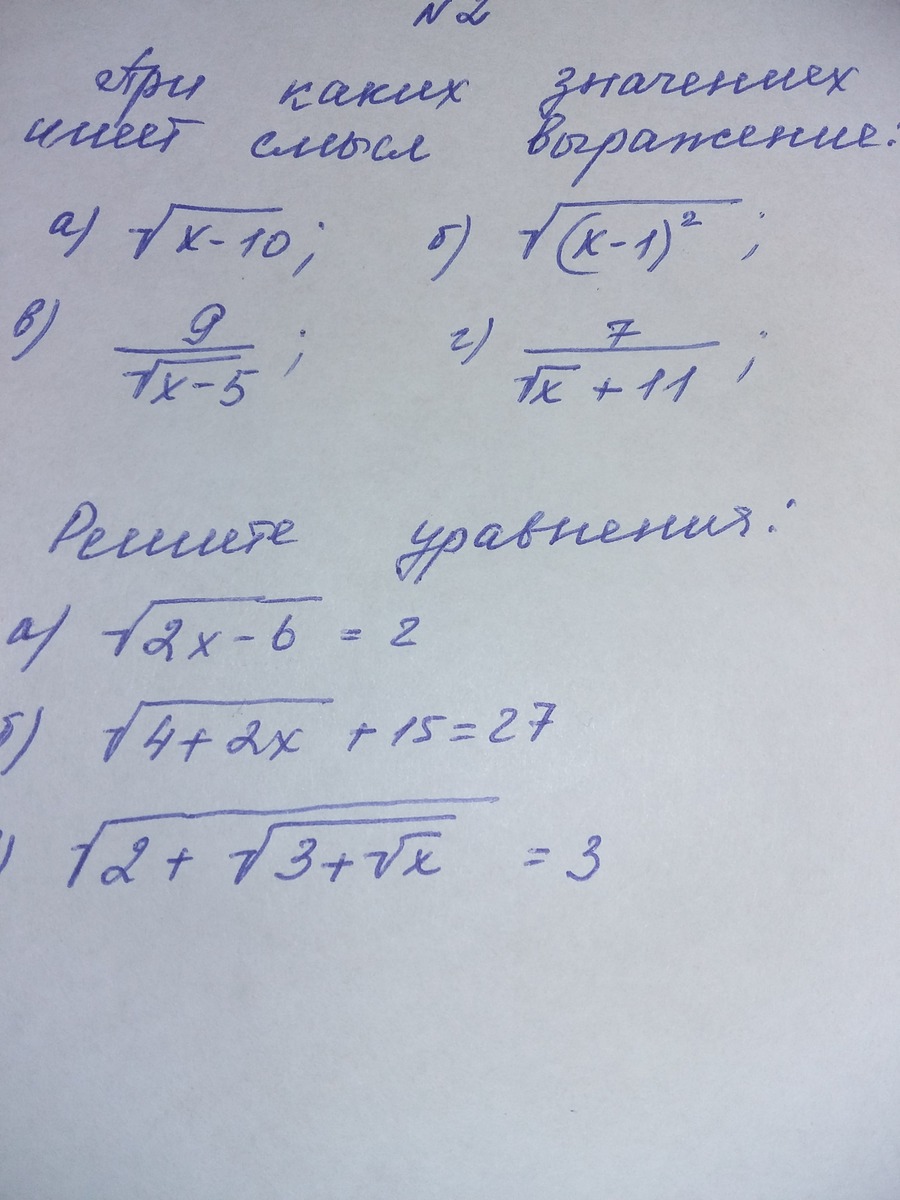 N 2
При каких значениях
имеет смысл выражение:
а) √(x-10); б) √((x-1)²);
в) 9/√(x-5); г) 7/(√x + 11);
Решите уравнения:
а) √(2x-6) = 2
б) √(4+2x) + 15 = 27
) √(2+√(3+√x)) = 3